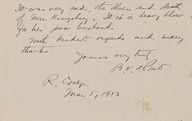 It was very sad, the illness and death
of Mrs. Kingsbury. It is a heavy blow
for her poor husband.
With kindest regards and many
thanks
Yours very truly
B.
R.
Mar. 5, 1913